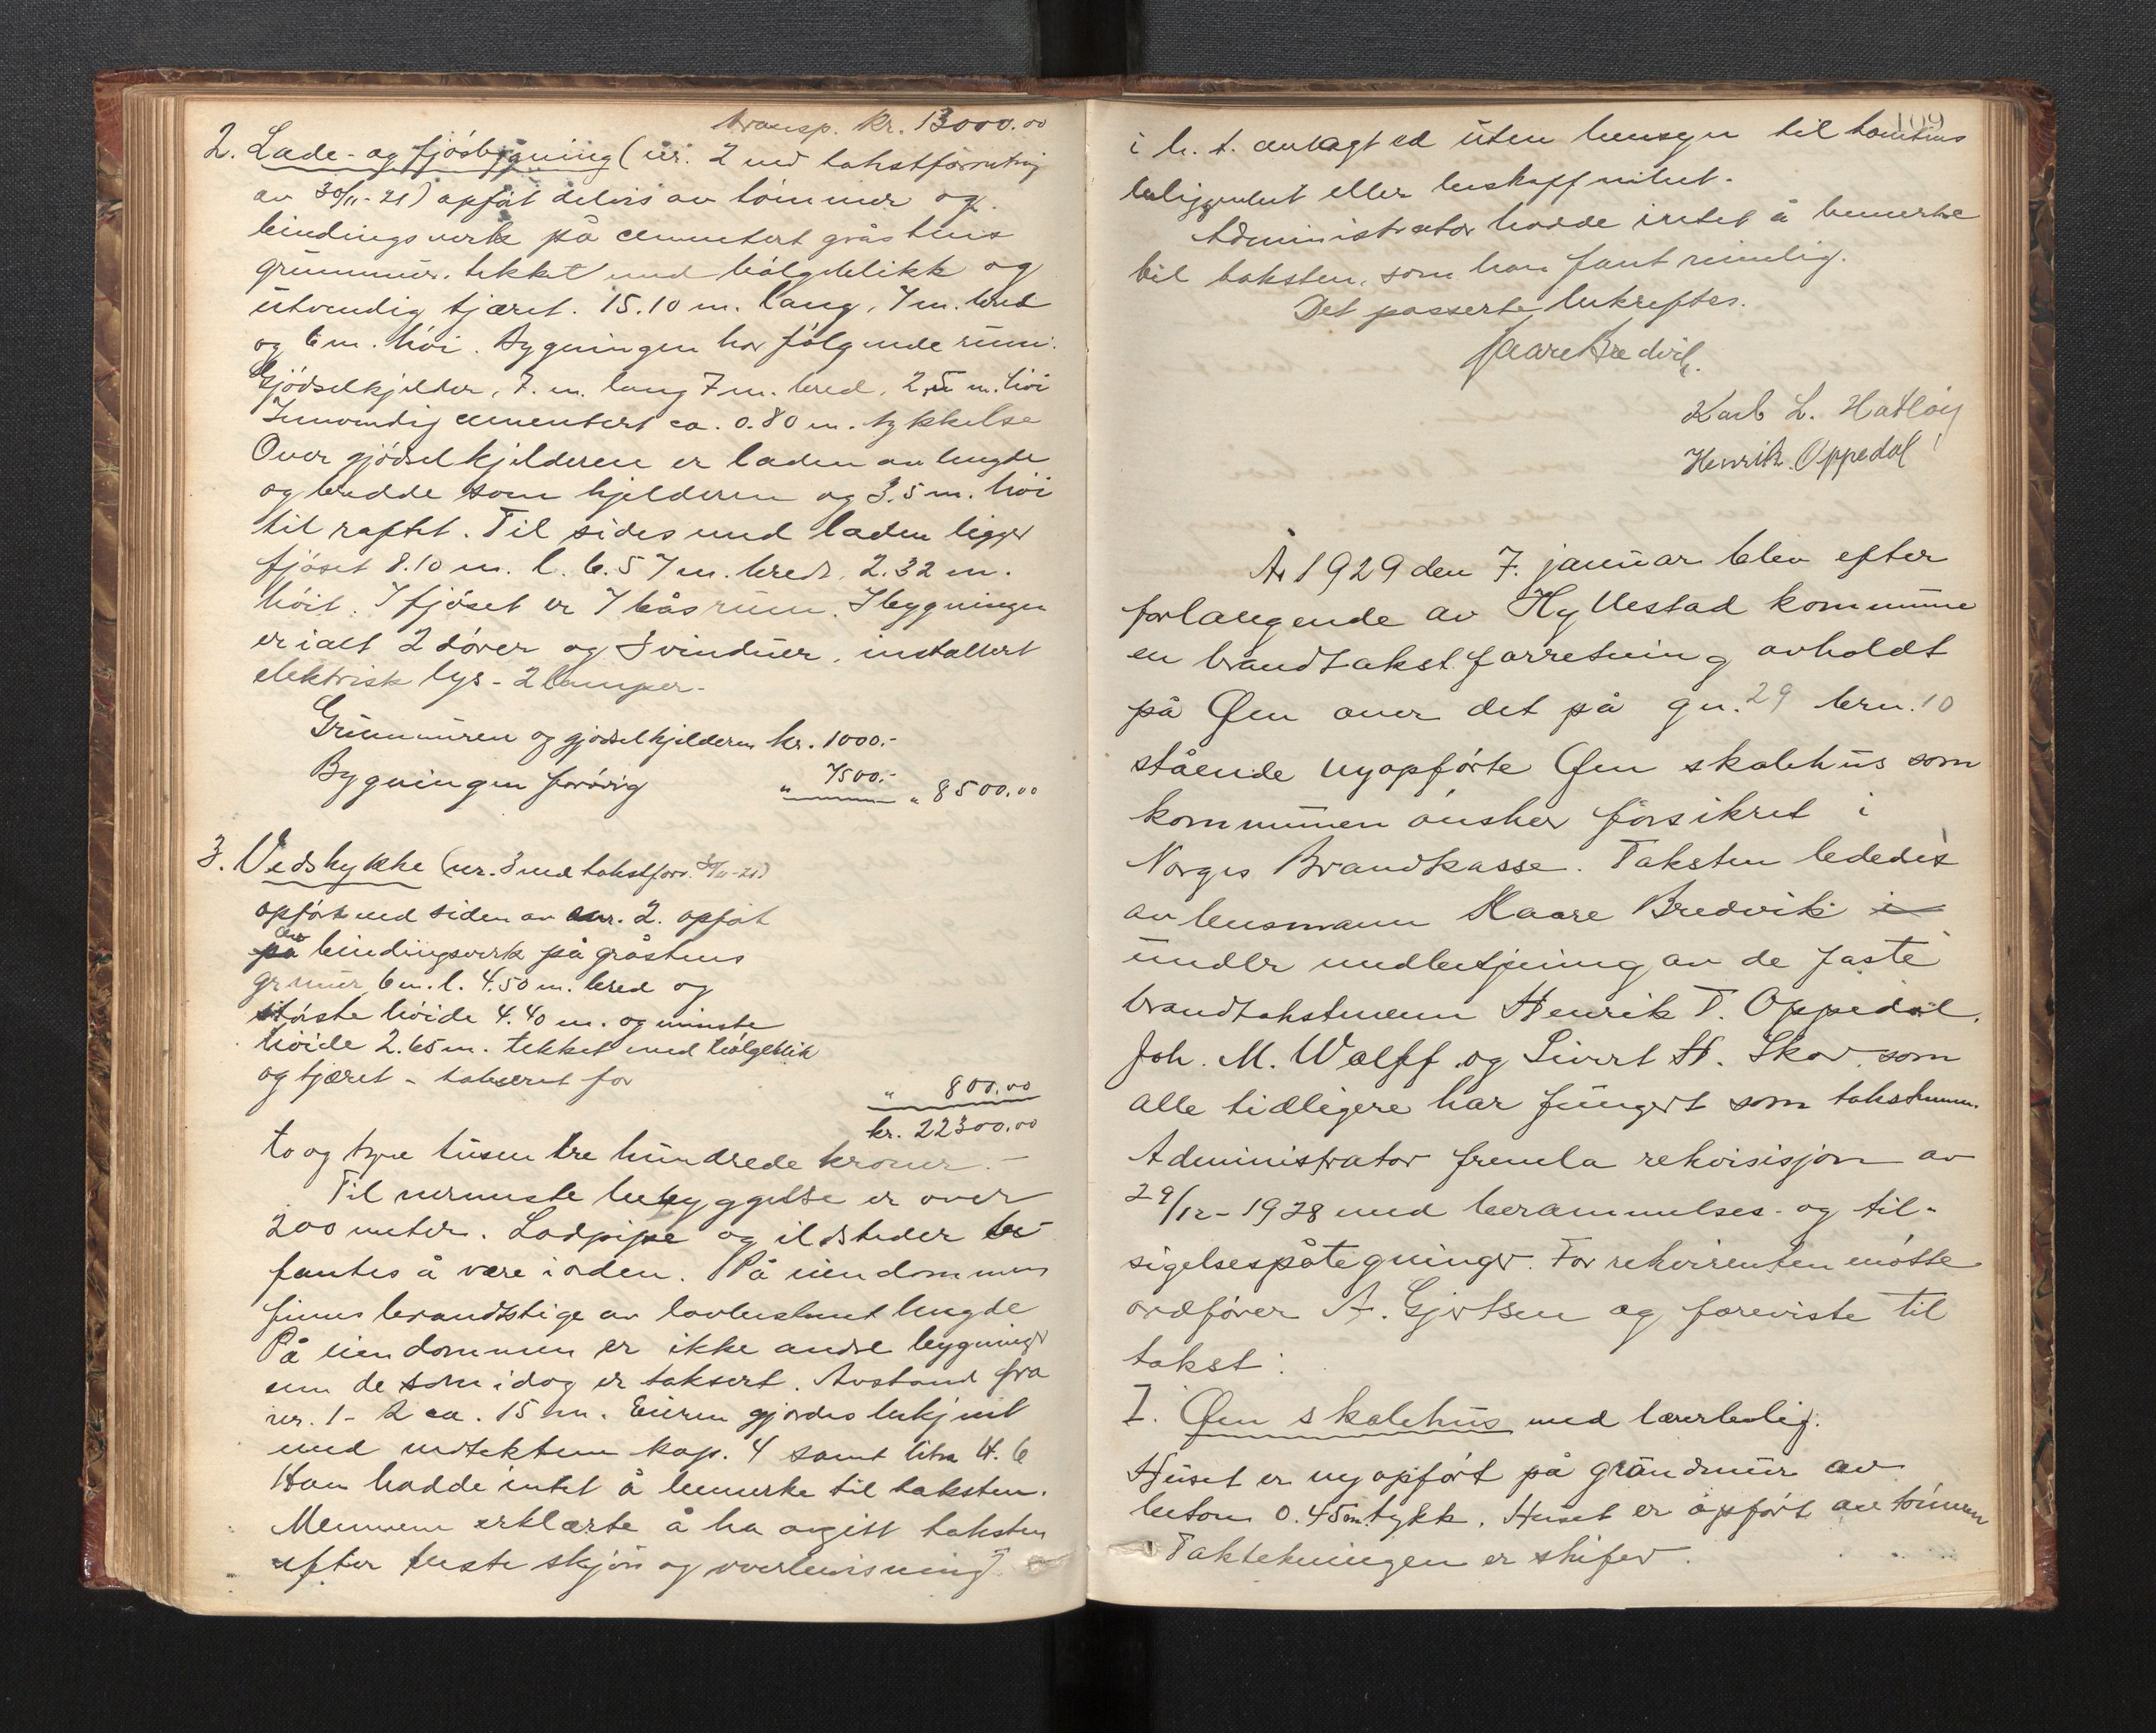 transp. kr. 13000.00
2. Lade- og fjósbygning (nr. 2 ved takstforretning
av 30/11-21) opfört delvis av tömmer og
bindingsverk på cementert gråstens
grunnmur, tekket med bölgeblikk og
utvendig tjæret. 15.10 m. lang, 7 m. bred
og 6 m. höi. Bygningen har fölgende rum:
Gjödselkjelder, 7. m. lang 7 m. bred, 2,5 m. höi
Innvendig cementert ca. 0.80 m. tykkelse
Over gjödselkjelderen er laden av lengde
og bredde som kjelderen og 3.5 m. höi
til raftet. Til sides med laden ligger
fjöset 8.10 m. l. 6.57 m. bred, 2.32 m.
höit. I fjöset er 7 båsrum. I bygningen
er ialt 2 dörer og 3 vinduer, installert
elektrisk lys - 2 lamper.
Grunnmuren og gjödselkjelderen kr. 1000.-
Bygningen forövrig " 7500.- " 8500.00
3. Vedskykkje (nr. 3 ved takstforr. 30/11-21)
opfört ved siden av nr. 2. opfört
av
på bindingsverk på gråstens
grmur 6 m. l. 4.50 m. bred og
störste höide 4.40 m. og minste
höide 2.65 m. tekket med bölgeblik
og tjæret - taksert for
" 800.00
kr. 22300.00
to og tyve tusen tre hundrede kroner.-
Til nermeste bebyggelse er over
200 meter. Lodpipe og ildsteder be-
fantes å være i orden. På eiendommen
finnes brandstige av lovbestemt lengde
På eiendommen er ikke andre bygninger
enn de som idag er taksert. Avstand fra
nr. 1 - 2 ca. 15 m. Eieren gjordes bekjent
med vedtektene kap. 4 samt litra H. 6
Han hadde intet å bemerke til taksten.
Mennene erklærte å ha avgitt taksten
efter beste skjön og overbevisning
109
i h. t. avlagt ed uten hensyn til tomtens
beliggenhet eller beskaffenhet.
Administrator hadde intet å bemerke
til taksten, som han fant rimelig.
Det passerte bekreftes.
Kaare Bredvik.
Karl L. Hatlöy
Henrik Oppedal
År 1929 den 7. januar blev efter
forlangende av Hyllestad kommune
en brandtakstforretning avholdt
på Øen over det på gn. 29 brn. 10
stående nyopförte Øen skolehus som
kommunen önsker forsikret i
Norges Brandkasse. Taksten lededes
av lensmann Kaare Bredvik i
under medbetjening av de faste
brandtakstmenn Henrik T. Oppedal,
Joh. M. Wolff og Sivert H. Skor som
alle tidligere har fungert som takstmenn.
Administrator fremla rekvisisjon av
29/12-1928 med berammelses- og til-
sigelsespåtegninger. For rekvirenten mötte
ordförer A. Gjertsen og foreviste til
takst:
I. Øen skolehus med lærerbolig.
Huset er nyopfört på grundmur av
beton 0.45 m. tykk. Huset er opfört av tömmer
Taktekningen er skifer.